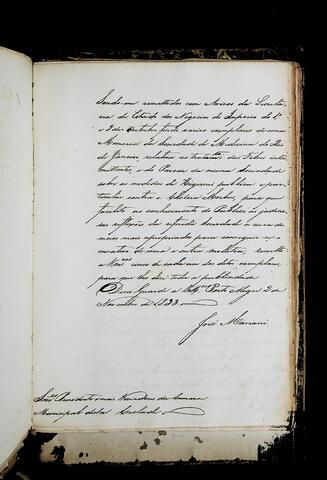 Sendo-me remettidos com Avizos da Secreta-
ria de Estado dos Negocios do Imperio de 1º
e 9 de Outubro findo varios exemplares de uma
Memoria da Sociedade de Medicina do Rio
de Janeiro relativa ao tratamto das Febres inter-
mittentes, e do Parecer da mesma Sociedade
sobre as medidas de Hygiene publica e par-
ticular contra o Cholera Morbus, para que
facilite ao conhecimento do Publico as judicio-
sas reflexões da referida Sociedade á cerca dos
meios mais apropriados para conseguir a
curativo de uma e outra molestia, remetto
a Vmces cinco de cada um dos ditos exemplares
para que lhe dêm toda a publicidade
Deos Guarde a Vmces Porto Alegre 2 de
Novembro de 1833
José Mariani
Snrs Presidente e mais Vereadores da Camara
Municipal desta Cidade